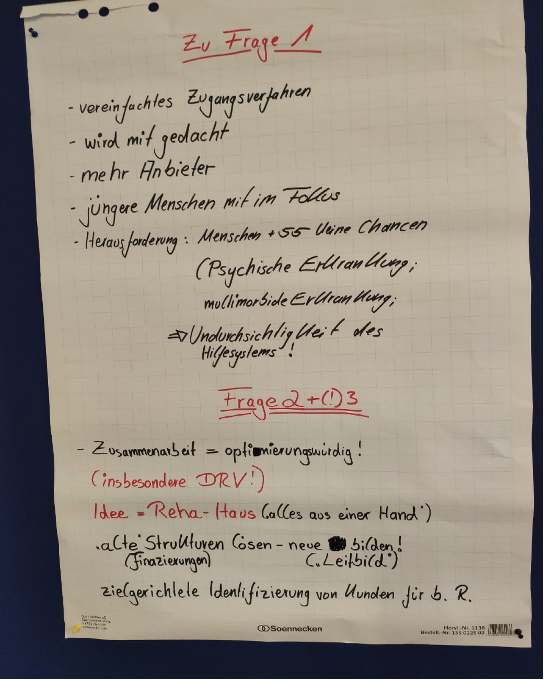 Zu Frage 1
- vereinfachtes Zugangsverfahren
- wird mit gedacht
- mehr Anbieter
- jüngere Menschen mit im Fokus
- Herausforderung: Menschen +55 keine Chancen
(Psychische Erkrankung;
multimorbide Erkrankung;
⇒ Undurchsichtigkeit des
Hilfesystems!
Frage 2+(!)3
- Zusammenarbeit = optimierungswürdig!
(insbesondere DRV!)
Idee = Reha-Haus („alles aus einer Hand")
„alte" Strukturen lösen - neue bilden!
(Finanzierungen) („Leitbild")
zielgerichtete Identifizierung von Kunden für b. R.
Soennecken